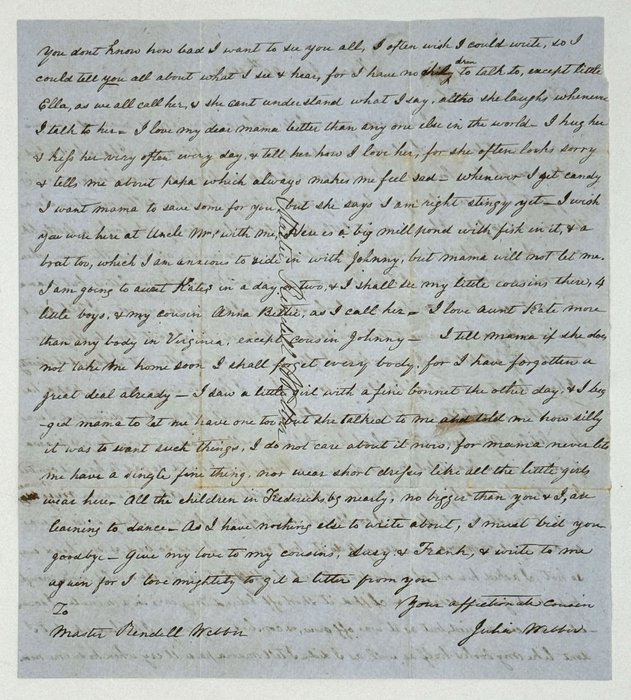 You dont know how bad I want to see you all, I often wish I could write, so I
could tell you all about what I see & hear, for I have no children to talk to, except little
Ella, as we all call her, & she cant understand what I say, altho she laughs whenever
I talk to her – I love my dear mama better than any one else in the world – I hug her
& kiss her very often every day, & tell her how I love her, for she often looks sorry
& tells me about papa which always makes me feel sad – whenever I get candy
I want mama to save some for you, but she says I am right stingy yet – I wish
you were here at Uncle Wms with me, Here is a big mill pond with fish in it, & a
boat too, which I am anxious to ride in with Johnny, but mama will not let me.
I am going to aunt Kates in a day or two, & I shall see my little cousins there, 4
little boys, & my cousin Anna Bettie, as I call her – I love aunt Kate more
than any body in Virginia, except cousin Johnny – I tell mama if she does
not take me home soon I shall forget every body, for I have forgotten a
great deal already – I saw a little girl with a fine bonnet the other day, & I beg
-ged mama to let me have one too, but she talked to me and told me how silly
it was to want such things, I do not care about it now, for mama never lets
me have a single fine thing, nor wear short dresses like all the little girls
wear here – All the children in Fredericksbg nearly, no bigger than you & I, are
learning to dance – As I have nothing else to write about, I must bid you
goodbye – Give my love to my cousins, Susy & Frank, & write to me
again for I love mightily to get a letter from you
Your affectionate cousin
To
Master Rendell Webber Julia Webber